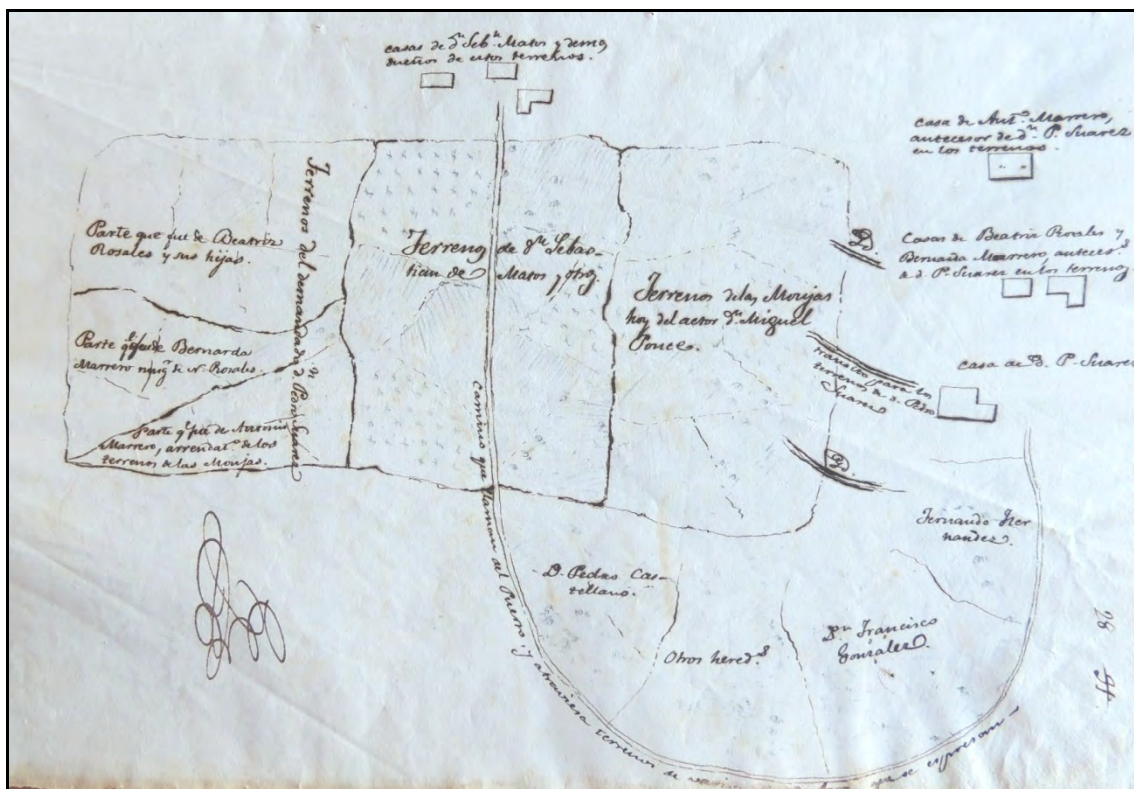 casas de Dn. Sebn. Matos y demas
dueños de estos terrenos.
casa de Anto. Marrero,
antecesor de dn. P. Suarez
en los terrenos.
Parte que fue de Beatriz
Rosales y sus hijas.
Terrenos del demandado dn Pedro Suarez
Terrenos de dn Sebas-
tian de Matos y otros
Terrenos de las Monjas
hoy del actor dn. Miguel
Ponce.
Casas de Beatriz Rosales y
Bernarda Marrero, anteces.s
de d. P. Suarez en los terrenos
Parte q. fue de Bernarda
Marrero mug.r de N. Rosales.
transito para los
terrenos de d. Pedro
Suarez
casa de D. P. Suarez
Parte q. fue de Antonio
Marrero, arrendat.o de los
terrenos de las Monjas.
Camino que llaman del Puerto: y atraviesa terrenos de que se espresan
Fernando Her-
nandez.
D. Pedro Cas-
tellano.
Otros hered.s
Dn Francisco
Gonzalez.
28